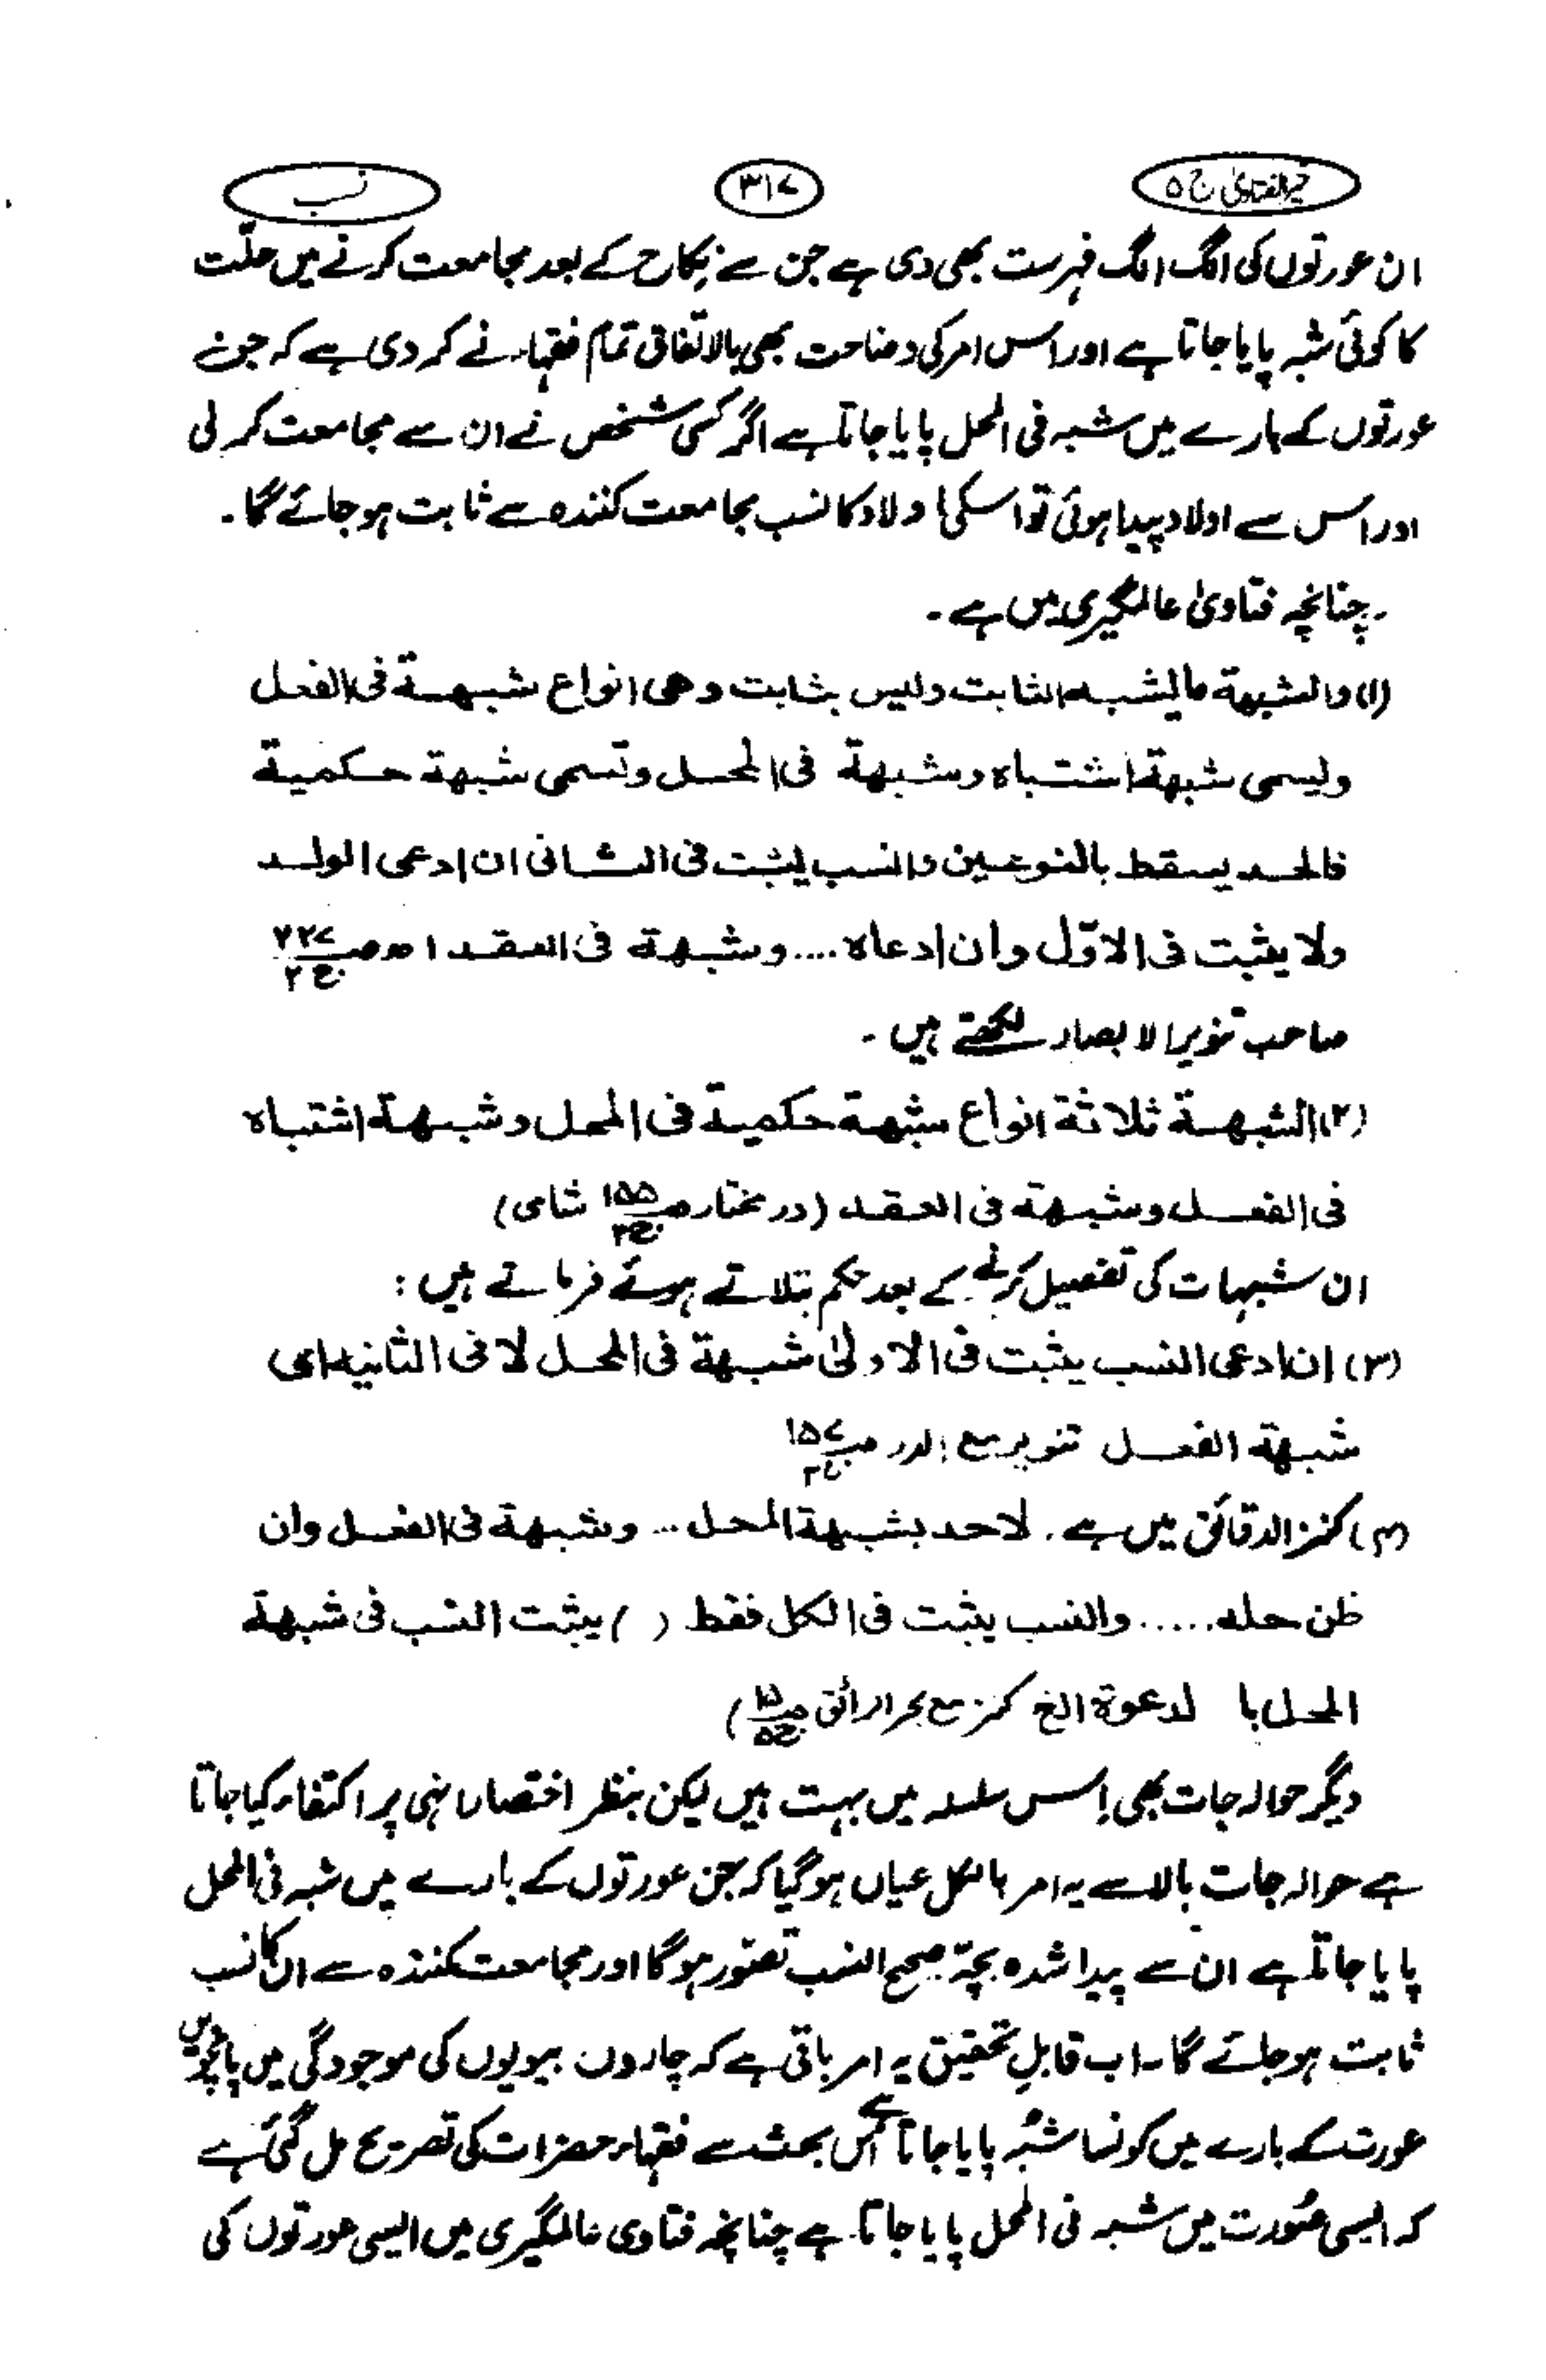 خیر الفتاویٰ ج ۵
۳۱۷
نسب
ان عورتوں کی الگ الگ فہرست بھی دی ہے جن سے نکاح کے بعد مجامعت کرنے میں حلّت
کا کوئی شبہ پایا جاتا ہے اور اس امر کی وضاحت بھی بالاتفاق تمام فقہاء نے کر دی ہے کہ جن
عورتوں کے بارے میں شبہ فی المحل پایا جاتا ہے اگر کسی شخص نے ان سے مجامعت کر لی
اور اس سے اولاد پیدا ہوئی تو اسکی اولاد کا نسب مجامعت کنندہ سے ثابت ہو جائے گا۔
چنانچہ فتاویٰ عالمگیری میں ہے۔
(۱) والشبهة ما یشبه الثابت ولیس بثابت وهی انواع شبهة فی الفعل
ولیسمی شبهة اشتباه وشبهة فی المحل وتسمی شبهة حکمیة
فالحد یسقط بالنوعین والنسب یثبت فی الثانی ان ادعی الولد
ولا یثبت فی الاوّل وان ادعاه .... وشبهة فی العقد اھ ص ۷۲۷ ج ۲
صاحب تنویر الابصار لکھتے ہیں۔
(۲) الشبهة ثلاثة انواع شبهة حکمیة فی المحل وشبهة اشتباه
فی الفعل وشبهة فی العقد (در مختار ص ۱۵۵ ج ۳ شامی)
ان شبہات کی تفصیل کرنے کے بعد حکم بتلاتے ہوئے فرماتے ہیں :
(۳) ان ادعی النسب یثبت فی الاولیٰ شبهة فی المحل لا فی الثانیه ای
شبهة الفعل تنویر مع الدر ص ۱۵۷ ج ۳
(۴) کنز الدقائق میں ہے . لا حد بشبهة المحل .. وشبهة فی الفعل وان
ظن حله ..... والنسب یثبت فی الکل فقط ( ) یثبت النسب فی شبهة
المحل با لدعوة الخ کنز مع بحر الرائق ص ۱۵ ج ۵)
دیگر حوالہ جات بھی اِس سلسلہ میں بہت ہیں لیکن بنظر اختصار انہی پر اکتفاء کیا جاتا
ہے حوالہ جات بالا سے یہ امر بالکل عیاں ہو گیا کہ جن عورتوں کے بارے میں شبہ فی المحل
پایا جاتا ہے ان سے پیدا شدہ بچّہ صحیح النسب تصوّر ہو گا اور مجامعت کنندہ سے ان کا نسب
ثابت ہو جائے گا۔ اب قابلِ تحقیق یہ امر باقی ہے کہ چاروں بیویوں کی موجودگی میں پانچویں
عورت کے بارے میں کونسا شبُہ پایا جاتا ہے اس بحث سے فقہاء حضرات کی تصریح مل گئی ہے
کہ ایسی صُورت میں شبہ فی المحل پایا جاتا ہے چنانچہ فتاوی عالمگیری میں ایسی عورتوں کی